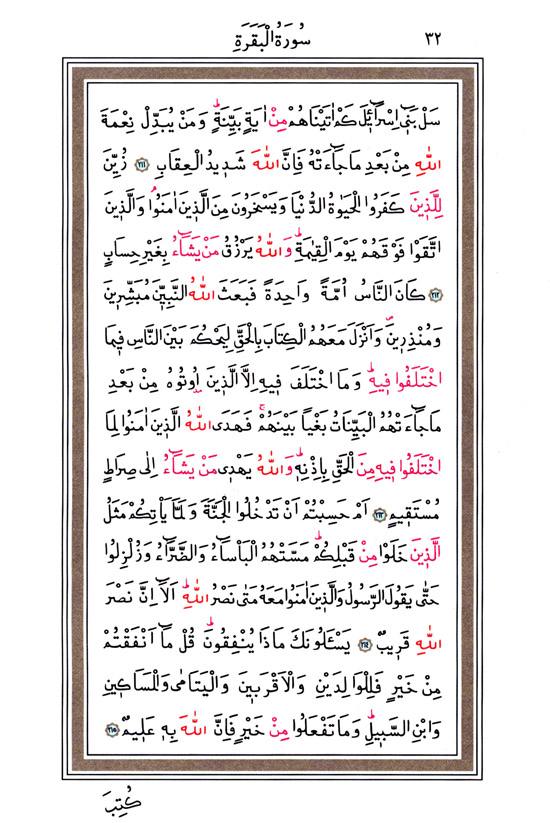 ٣٢ سُورَةُ الْبَقَرَةِ
سَلْ بَنٖٓي اِسْرَٓائٖلَ كَمْ اٰتَيْنَاهُمْ مِنْ اٰيَةٍ بَيِّنَةٍؕ وَمَنْ يُبَدِّلْ نِعْمَةَ
اللّٰهِ مِنْ بَعْدِ مَا جَٓاءَتْهُ فَاِنَّ اللّٰهَ شَدٖيدُ الْعِقَابِ ﴿٢١١﴾ زُيِّنَ
لِلَّذٖينَ كَفَرُوا الْحَيٰوةُ الدُّنْيَا وَيَسْخَرُونَ مِنَ الَّذٖينَ اٰمَنُواۘ وَالَّذٖينَ
اتَّقَوْا فَوْقَهُمْ يَوْمَ الْقِيٰمَةِؕ وَاللّٰهُ يَرْزُقُ مَنْ يَشَٓاءُ بِغَيْرِ حِسَابٍ
﴿٢١٢﴾ كَانَ النَّاسُ اُمَّةً وَاحِدَةً فَبَعَثَ اللّٰهُ النَّبِيّٖنَ مُبَشِّرٖينَ
وَمُنْذِرٖينَࣕ وَاَنْزَلَ مَعَهُمُ الْكِتَابَ بِالْحَقِّ لِيَحْكُمَ بَيْنَ النَّاسِ فٖيمَا
اخْتَلَفُوا فٖيهِؕ وَمَا اخْتَلَفَ فٖيهِ اِلَّا الَّذٖينَ اُو۫تُوهُ مِنْ بَعْدِ
مَا جَٓاءَتْهُمُ الْبَيِّنَاتُ بَغْياً بَيْنَهُمْۚ فَهَدَى اللّٰهُ الَّذٖينَ اٰمَنُوا لِمَا
اخْتَلَفُوا فٖيهِ مِنَ الْحَقِّ بِاِذْنِهٖؕ وَاللّٰهُ يَهْدٖي مَنْ يَشَٓاءُ اِلٰى صِرَاطٍ
مُسْتَقٖيمٍ ﴿٢١٣﴾ اَمْ حَسِبْتُمْ اَنْ تَدْخُلُوا الْجَنَّةَ وَلَمَّا يَأْتِكُمْ مَثَلُ
الَّذٖينَ خَلَوْا مِنْ قَبْلِكُمْؕ مَسَّتْهُمُ الْبَأْسَٓاءُ وَالضَّرَّٓاءُ وَزُلْزِلُوا
حَتّٰى يَقُولَ الرَّسُولُ وَالَّذٖينَ اٰمَنُوا مَعَهُ مَتٰى نَصْرُ اللّٰهِؕ اَلَٓا اِنَّ نَصْرَ
اللّٰهِ قَرٖيبٌ ﴿٢١٤﴾ يَسْـَٔلُونَكَ مَاذَا يُنْفِقُونَؕ قُلْ مَٓا اَنْفَقْتُمْ
مِنْ خَيْرٍ فَلِلْوَالِدَيْنِ وَالْاَقْرَبٖينَ وَالْيَتَامٰى وَالْمَسَاكٖينِ
وَابْنِ السَّبٖيلِؕ وَمَا تَفْعَلُوا مِنْ خَيْرٍ فَاِنَّ اللّٰهَ بِهٖ عَلٖيمٌ ﴿٢١٥﴾
كُتِبَ